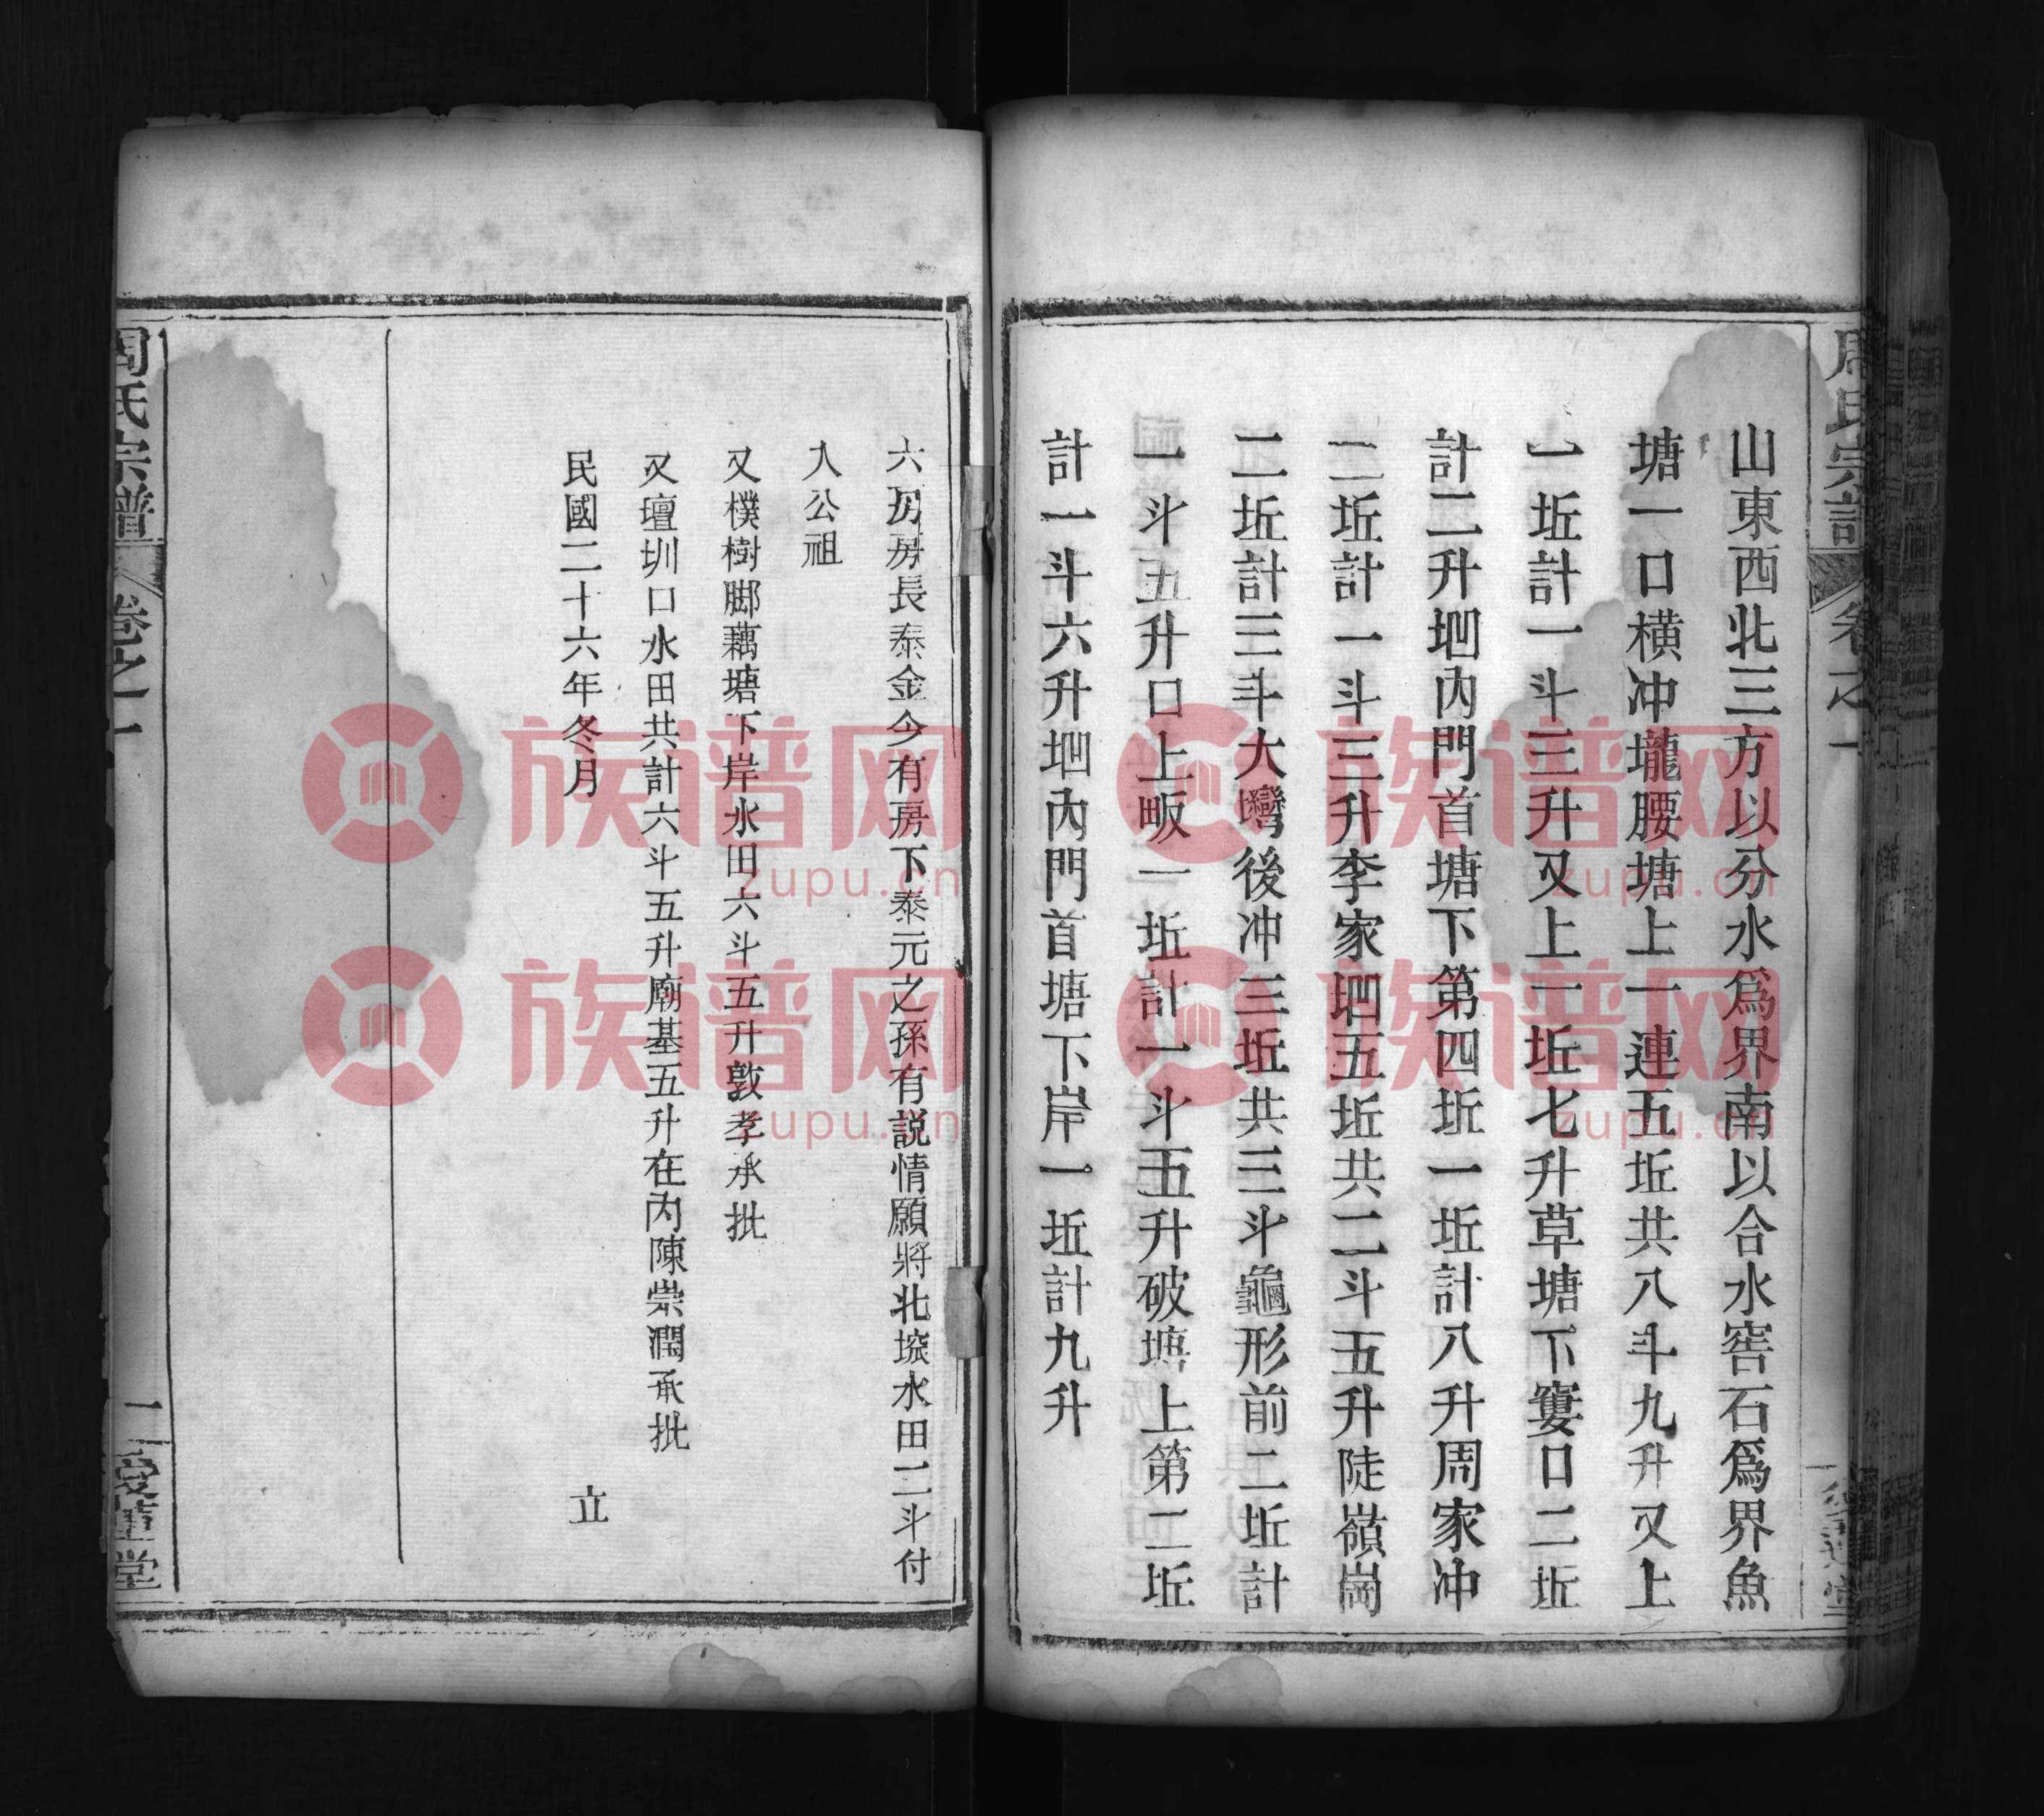 周氏宗譜 卷之一
山東西北三方以分水爲界南以合水窖石爲界魚
塘一口橫冲壠腰塘上一連五坵共八斗九升又上
一坵計一斗三升又上一坵七升草塘下窶口二坵
計二升垇內門首塘下第四坵一坵計八升周家冲
二坵計一斗三升李家垇五坵共二斗五升陡嶺崗
二坵計三斗大壪後冲三坵共三斗龜形前二坵計
一斗五升口上畈一坵計一斗五升破塘上第二坵
計一斗六升垇內門首塘下岸一坵計九升
六房房長泰金今有房下泰元之孫有説情願將北塝水田二斗付
入公祖
又樸樹脚藕塘下岸水田六斗五升敦孝承批
又壇圳口水田共計六斗五升廟基五升在內陳崇潤承批
民國二十六年冬月 立
周氏宗譜 卷之一 二 愛蓮堂
族谱网
zupu.cn
族谱网
zupu.cn
族谱网
zupu.cn
族谱网
zupu.cn